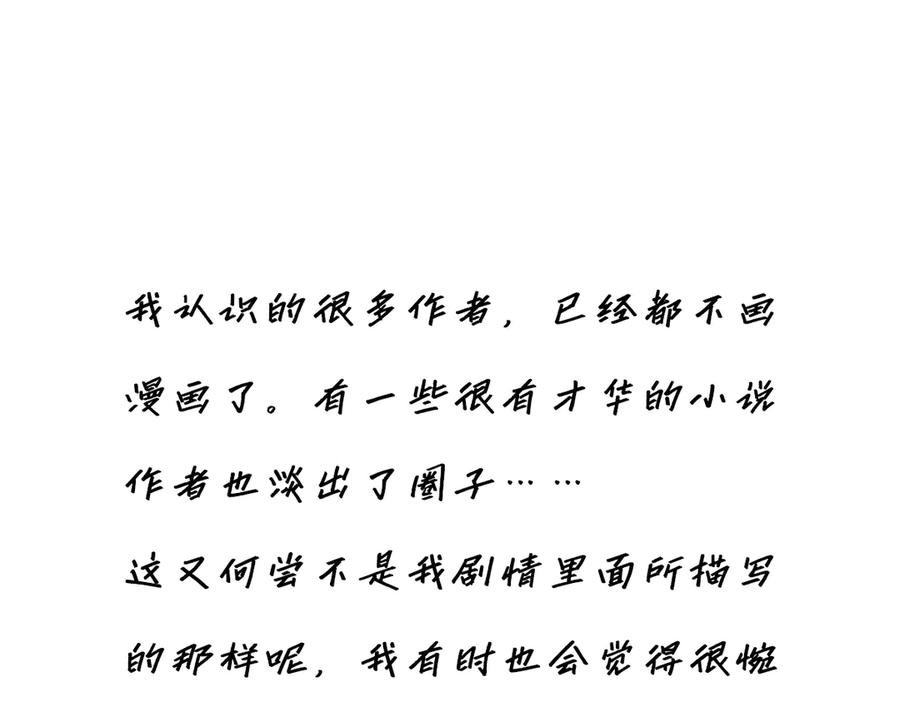 我认识的很多作者，已经都不画
漫画了。有一些很有才华的小说
作者也淡出了圈子……
这又何尝不是我剧情里面所描写
的那样呢，我有时也会觉得很惋